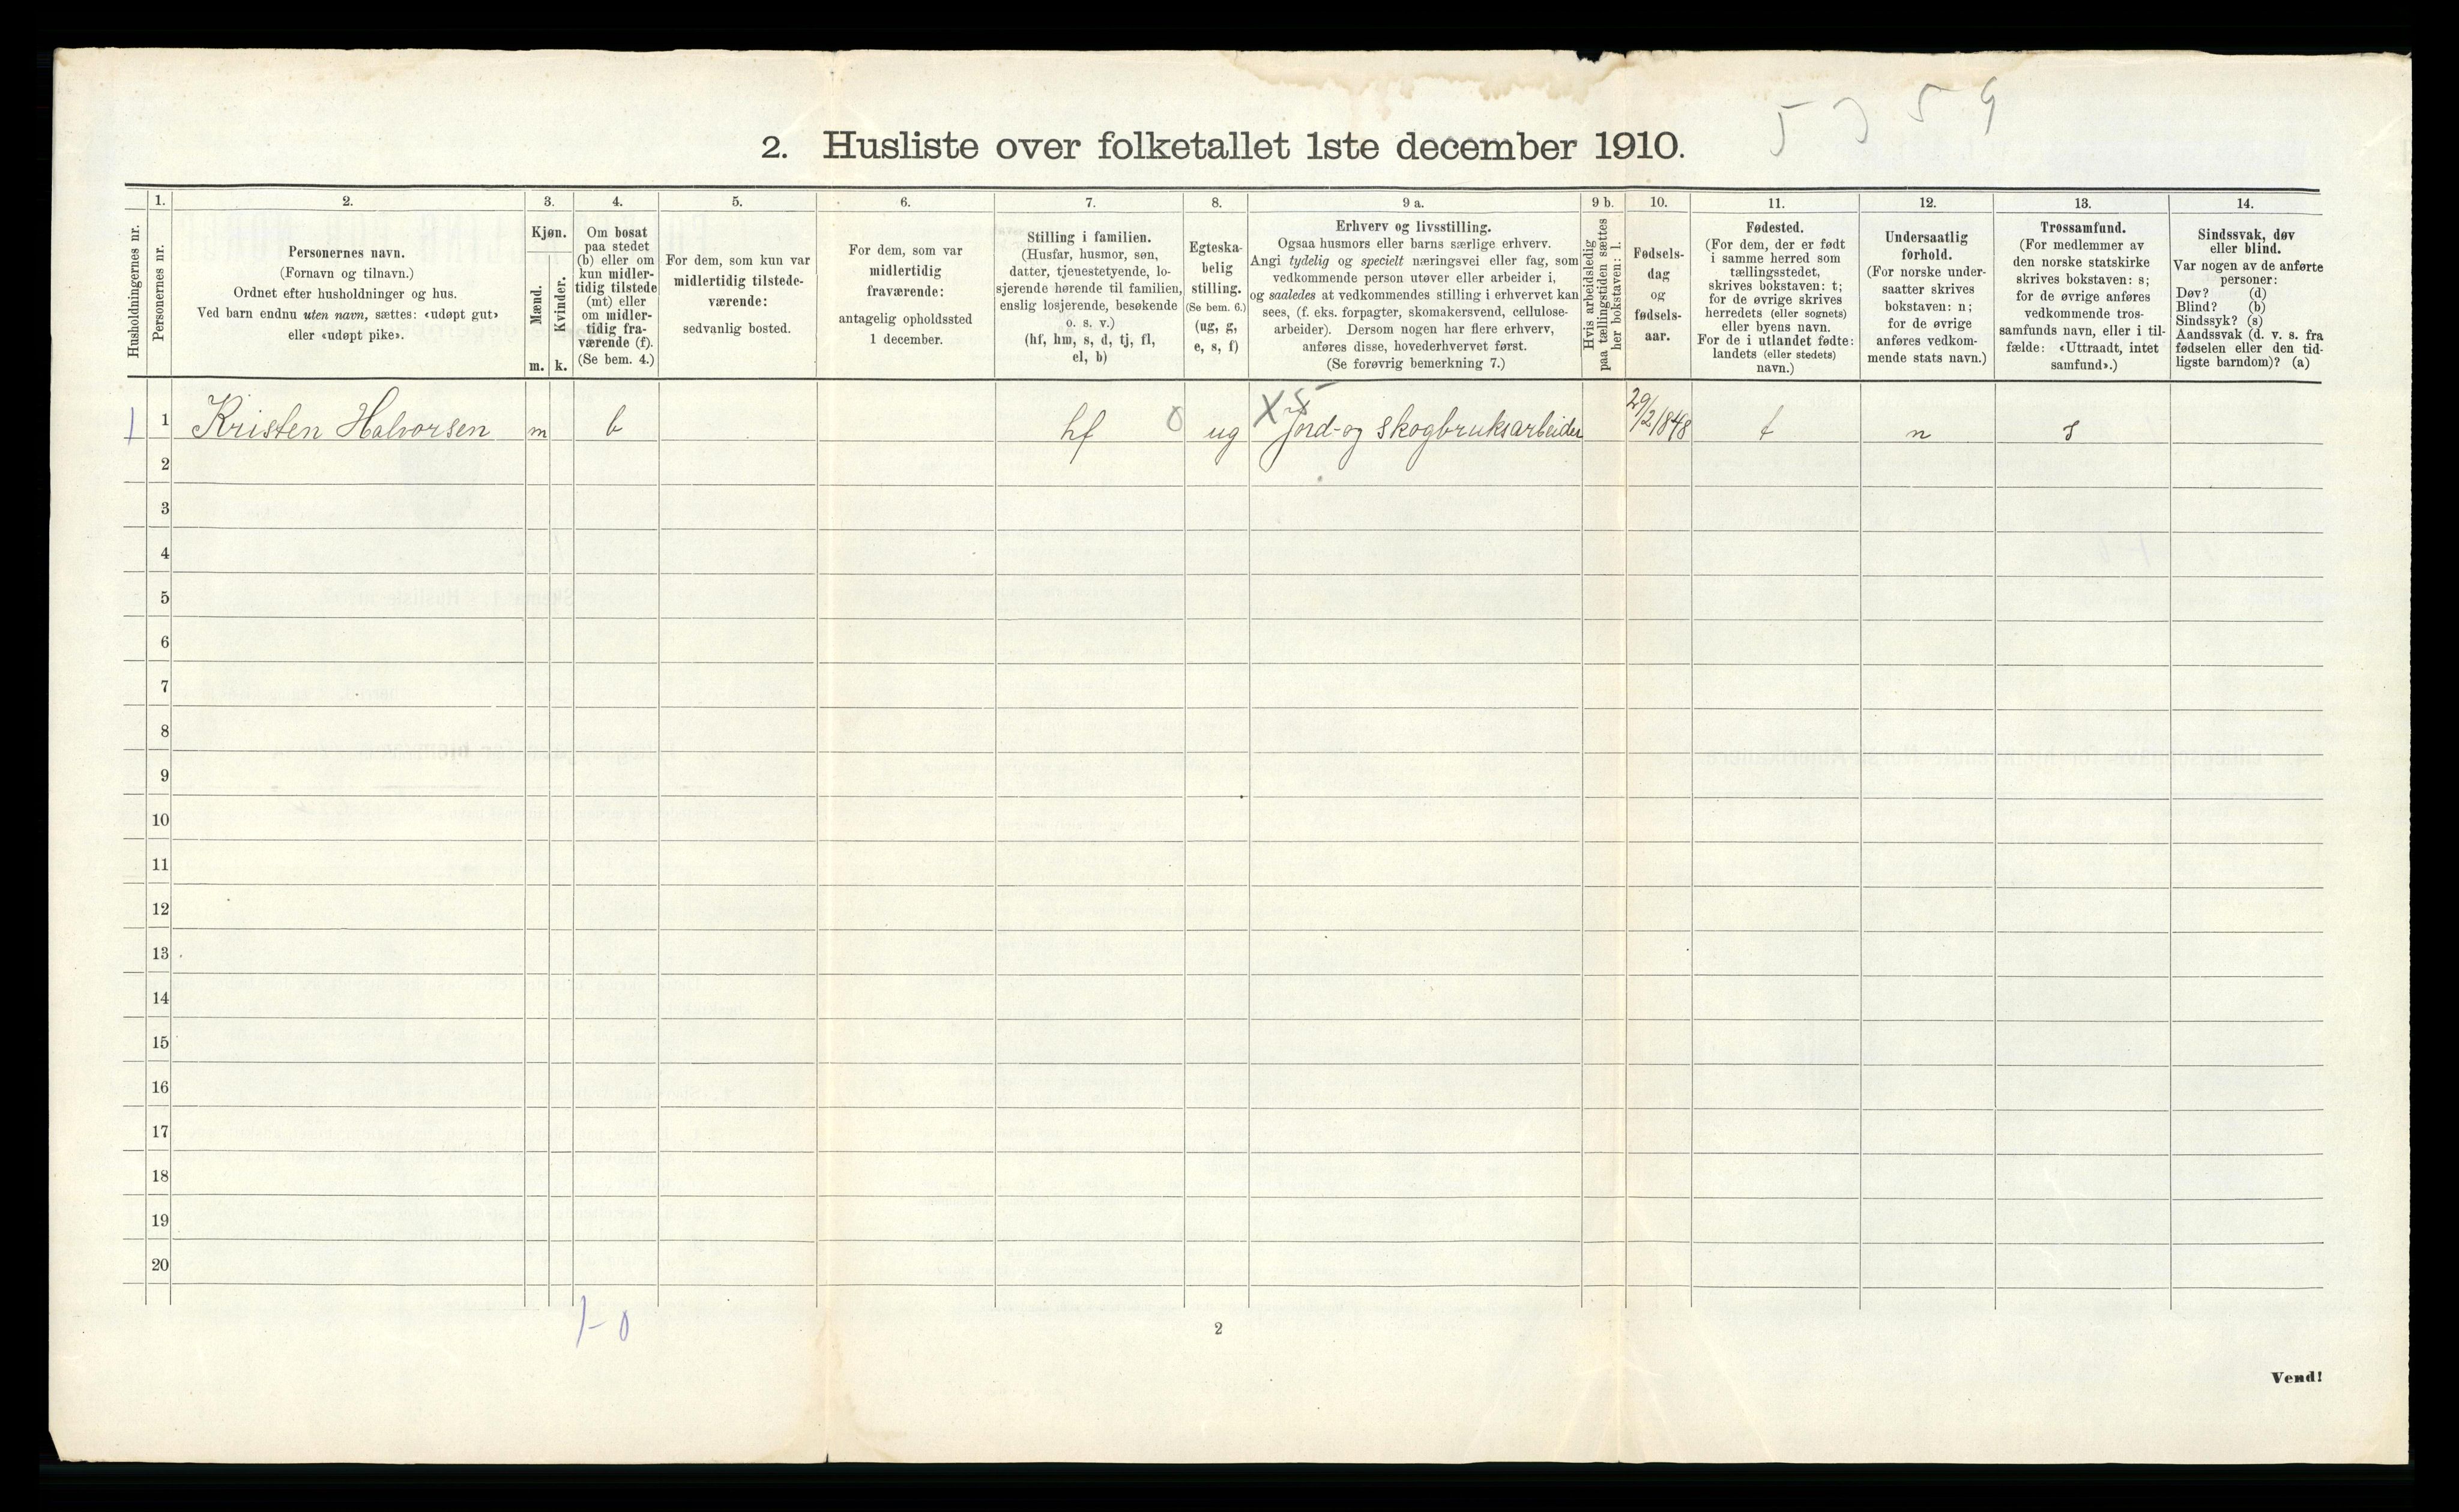 5 3 5 9
2. Husliste over folketallet 1ste december 1910.
Husholdningernes nr.
1.
Personernes nr.
2.
Personernes navn.
(Fornavn og tilnavn.)
Ordnet efter husholdninger og hus.
Ved barn endnu uten navn, sættes: «udøpt gut»
eller «udøpt pike».
3.
Kjøn.
Mænd.
Kvinder.
m. k.
4.
Om bosat
paa stedet
(b) eller om
kun midler-
tidig tilstede
(mt) eller
om midler-
tidig fra-
værende (f).
(Se bem. 4.)
5.
For dem, som kun var
midlertidig tilstede-
værende:
sedvanlig bosted.
6.
For dem, som var
midlertidig
fraværende:
antagelig opholdssted
1 december.
7.
Stilling i familien.
(Husfar, husmor, søn,
datter, tjenestetyende, lo-
sjerende hørende til familien,
enslig losjerende, besøkende
o. s. v.)
(hf, hm, s, d, tj, fl,
el, b)
8.
Egteska-
belig
stilling.
(Se bem. 6.)
(ug, g,
e, s, f)
9 a.
Erhverv og livsstilling.
Ogsaa husmors eller barns særlige erhverv.
Angi tydelig og specielt næringsvei eller fag, som
vedkommende person utøver eller arbeider i,
og saaledes at vedkommendes stilling i erhvervet kan
sees, (f. eks. forpagter, skomakersvend, cellulose-
arbeider). Dersom nogen har flere erhverv,
anføres disse, hovederhvervet først.
(Se forøvrig bemerkning 7.)
9 b.
Hvis arbeidsledig
paa tællingstiden sættes
her bokstaven: l.
10.
Fødsels-
dag
og
fødsels-
aar.
11.
Fødested.
(For dem, der er født
i samme herred som
tællingsstedet,
skrives bokstaven: t;
for de øvrige skrives
herredets (eller sognets)
eller byens navn.
For de i utlandet fødte:
landets (eller stedets)
navn.)
12.
Undersaatlig
forhold.
(For norske under-
saatter skrives
bokstaven: n;
for de øvrige
anføres vedkom-
mende stats navn.)
13.
Trossamfund.
(For medlemmer av
den norske statskirke
skrives bokstaven: s;
for de øvrige anføres
vedkommende tros-
samfunds navn, eller i til-
fælde: «Uttraadt, intet
samfund».)
14.
Sindssvak, døv
eller blind.
Var nogen av de anførte
personer:
Døv? (d)
Blind? (b)
Sindssyk? (s)
Aandssvak (d. v. s. fra
fødselen eller den tid-
ligste barndom)? (a)
1 1 Kristen Halvorsen m b hf 0 ug X 5 Jord- og skogbruksarbeider 29/2 1848 t n s
2
3
4
5
6
7
8
9
10
11
12
13
14
15
16
17
18
19
20
1-0
2
Vend!